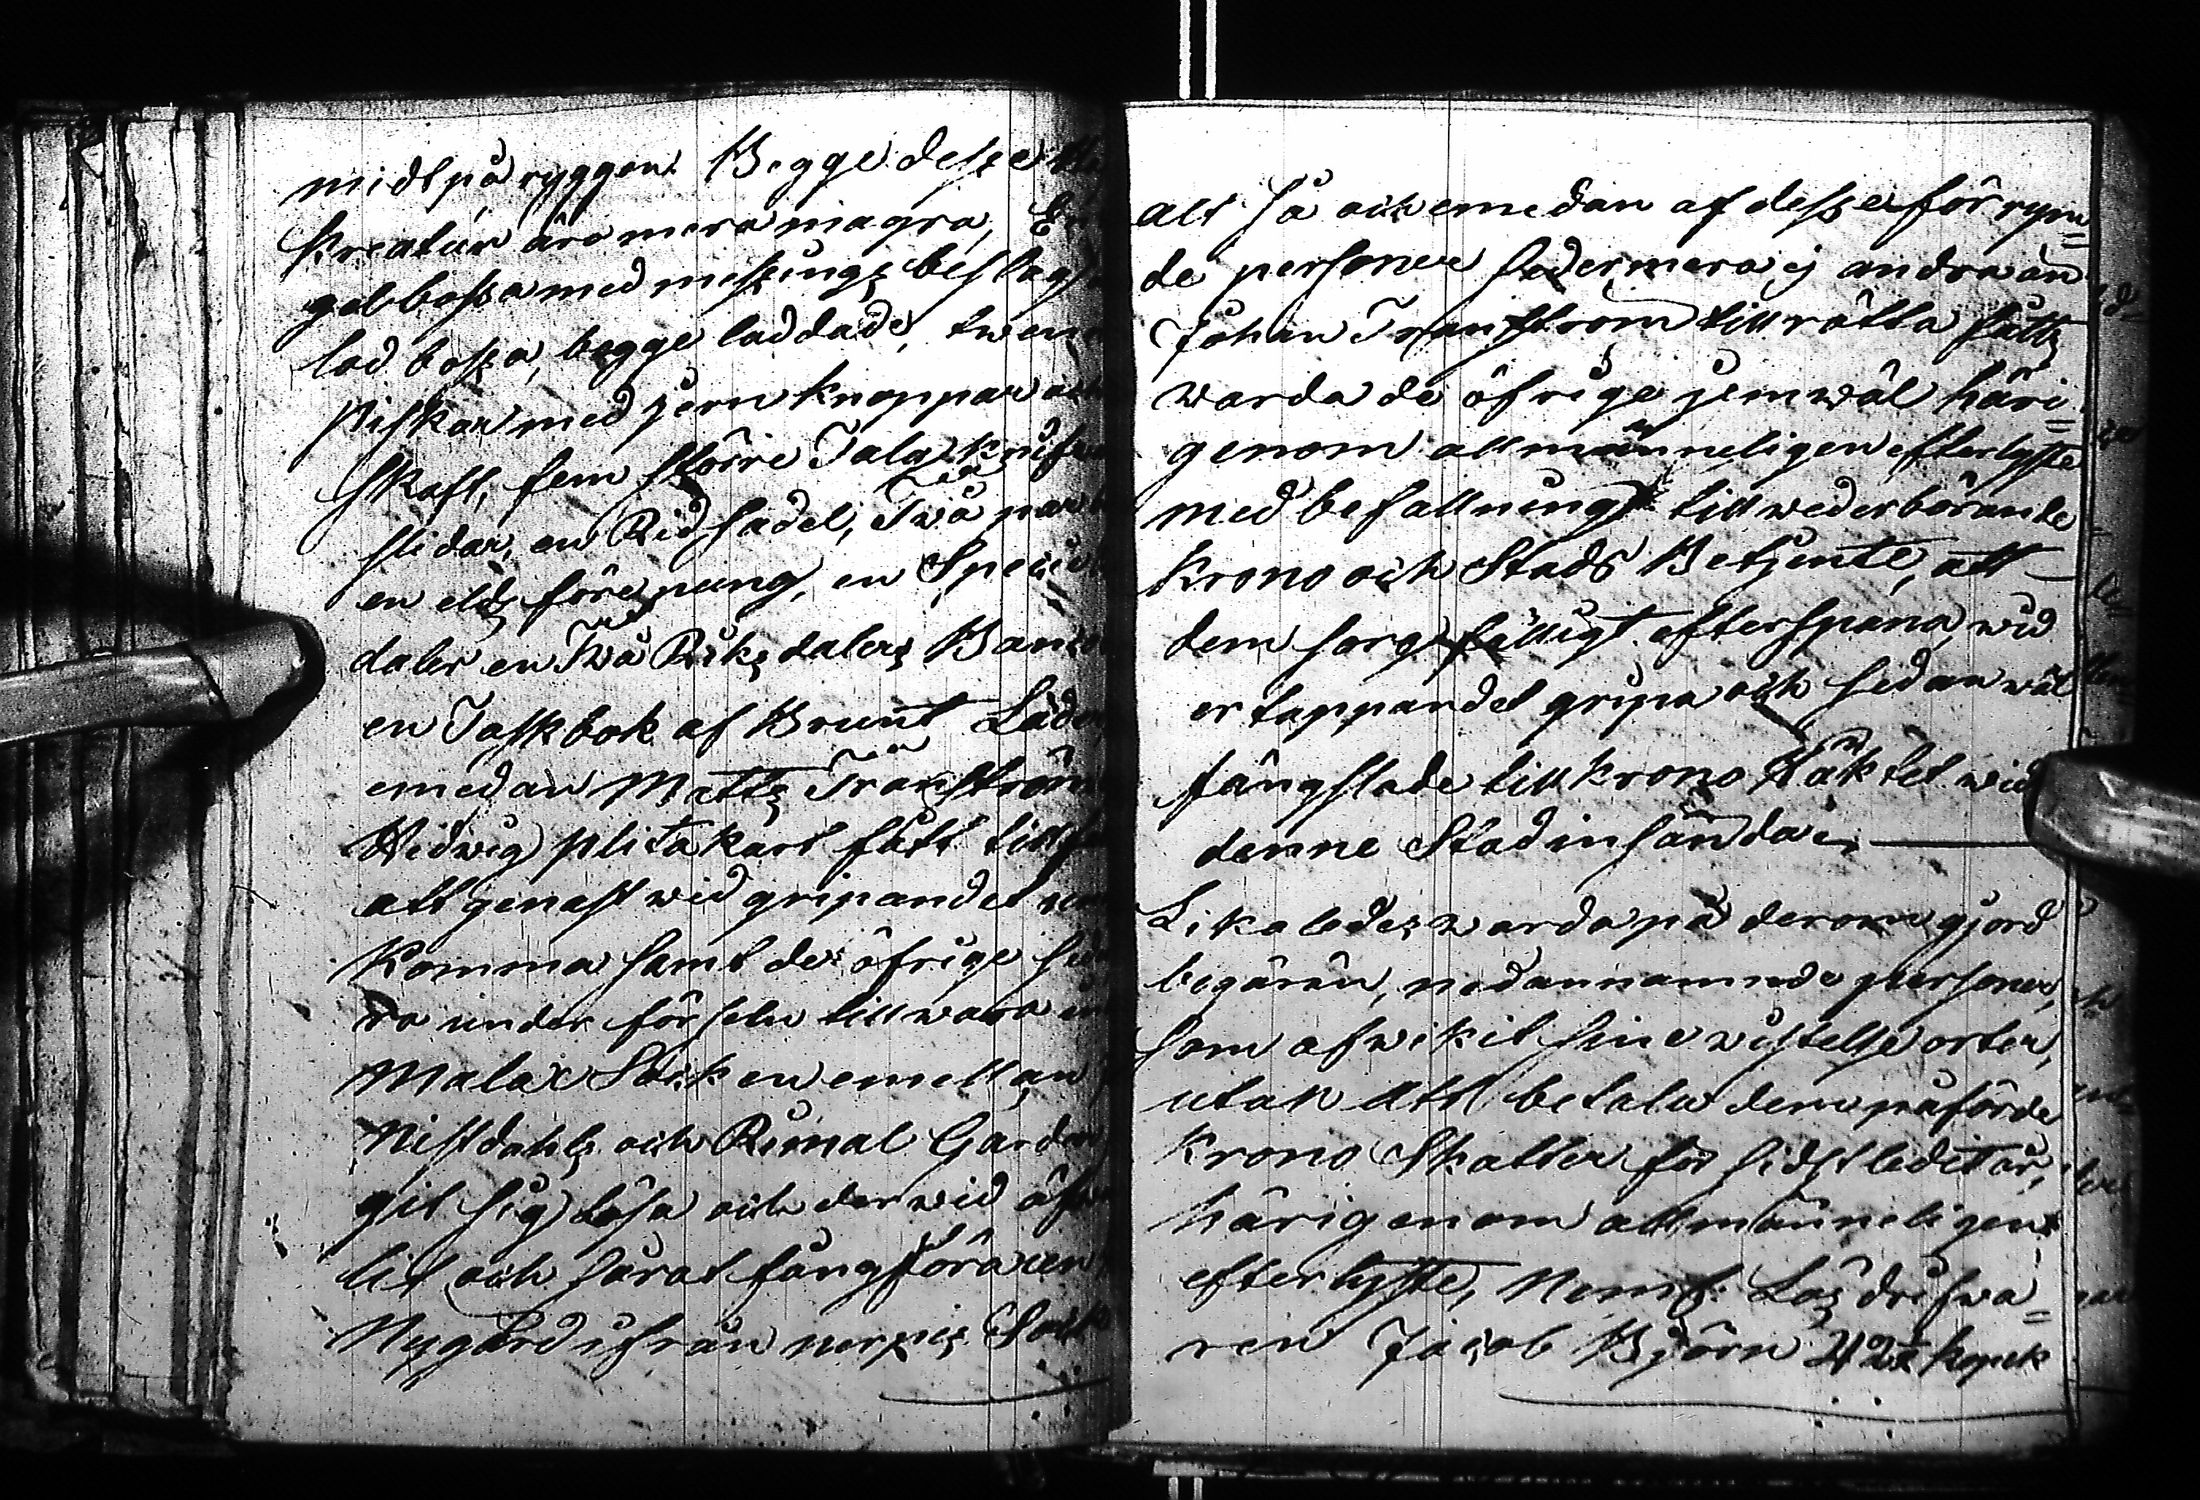 midt på ryggen. Begge desze
Kreatur äro mera magra, En
gelbösza med meszings beslag
lodbösza, begge laddade, twen
Piskor med jern knoppar och
skaft, fem större Talg knifvar
slidar, en Ridsadel, Två par
en elds förepung, en Specie
daler en Två Riksdalers Banco
en Taskbok af Brunt Läder
emedan Matts Tranström
Hedwig plitakart fått till
att genast wid gripandet
Komma samt de öfrige
ra under förseln till wara
Malax Socken emellan
Nistdahls och Rimal Gårdar
git sig lösa och der wid öfver
lit och sårat fångföraren
Nygård ifrån nerpis Sock
alt så och emedan af desze förrym=
de personer sedermera ej andra än
Johan Tranström till rätta fått
warda de öfrige jemwäl häri=
genom allmänneligen efterlyste
med befallning till wederbörande
Krono och Stads Betjente, att
dem sorgfälligt efterspana, wid
ertappandet gripa och sedan wäl
fängslade till krono Häktet wid
denne Stad insända.
Likaledes warda på derom gjord
begäran, nedannamnde personer,
som afwikit sine wistelse orter,
utan att betala dem påförde
Krono Skatter för sidstledit år,
härigenom allmänneligen
efterlyste, Neml. Lösdrifwa=
ren Jacob Björn 42½ kopek